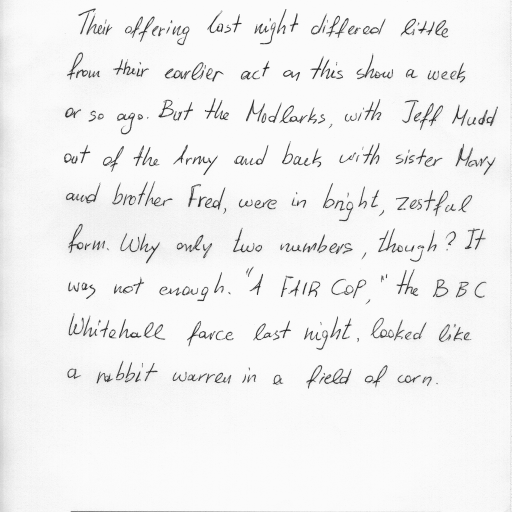 Their offering last night differed little
from their earlier act on this show a week
or so ago. But the Modlarks, with Jeff Mudd
out of the Army and back with sister Mary
and brother Fred, were in bright, zestful
form. Why only two numbers, though? It
was not enough. "A FAIR COP," the BBC
Whitehall farce last night, looked like
a rabbit warren in a field of corn.